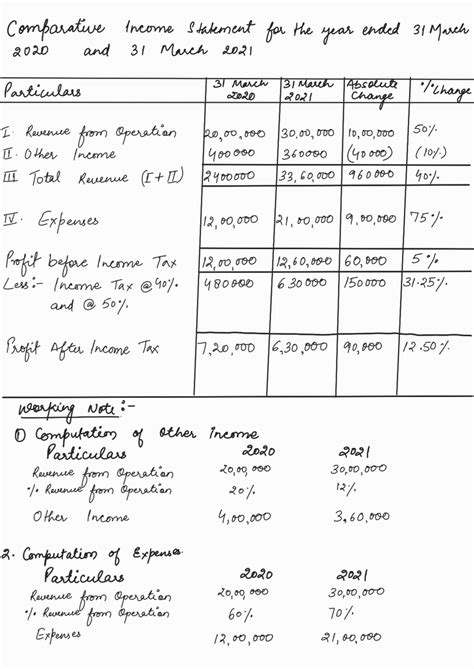 Comparative Income Statement for the year ended 31 March
2020 and 31 March 2021
Particulars 31 March 2020 31 March 2021 Absolute Change % Change
I. Revenue from Operation 20,00,000 30,00,000 10,00,000 50%
II. Other Income 400000 360000 (40000) (10%)
III Total Revenue (I+II) 2400000 33,60,000 960000 40%
IV. Expenses 12,00,000 21,00,000 9,00,000 75%
Profit before Income Tax 12,00,000 12,60,000 60,000 5%
Less:- Income Tax @ 40% 480000 630000 150000 31.25%
and @ 50%
Profit After Income Tax 7,20,000 6,30,000 90,000 12.50%
Working Note:-
① Computation of Other Income
Particulars 2020 2021
Revenue from Operation 20,00,000 30,00,000
% Revenue from Operation 20% 12%
Other Income 4,00,000 3,60,000
2. Computation of Expenses
Particulars 2020 2021
Revenue from Operation 20,00,000 30,00,000
% Revenue from Operation 60% 70%
Expenses 12,00,000 21,00,000